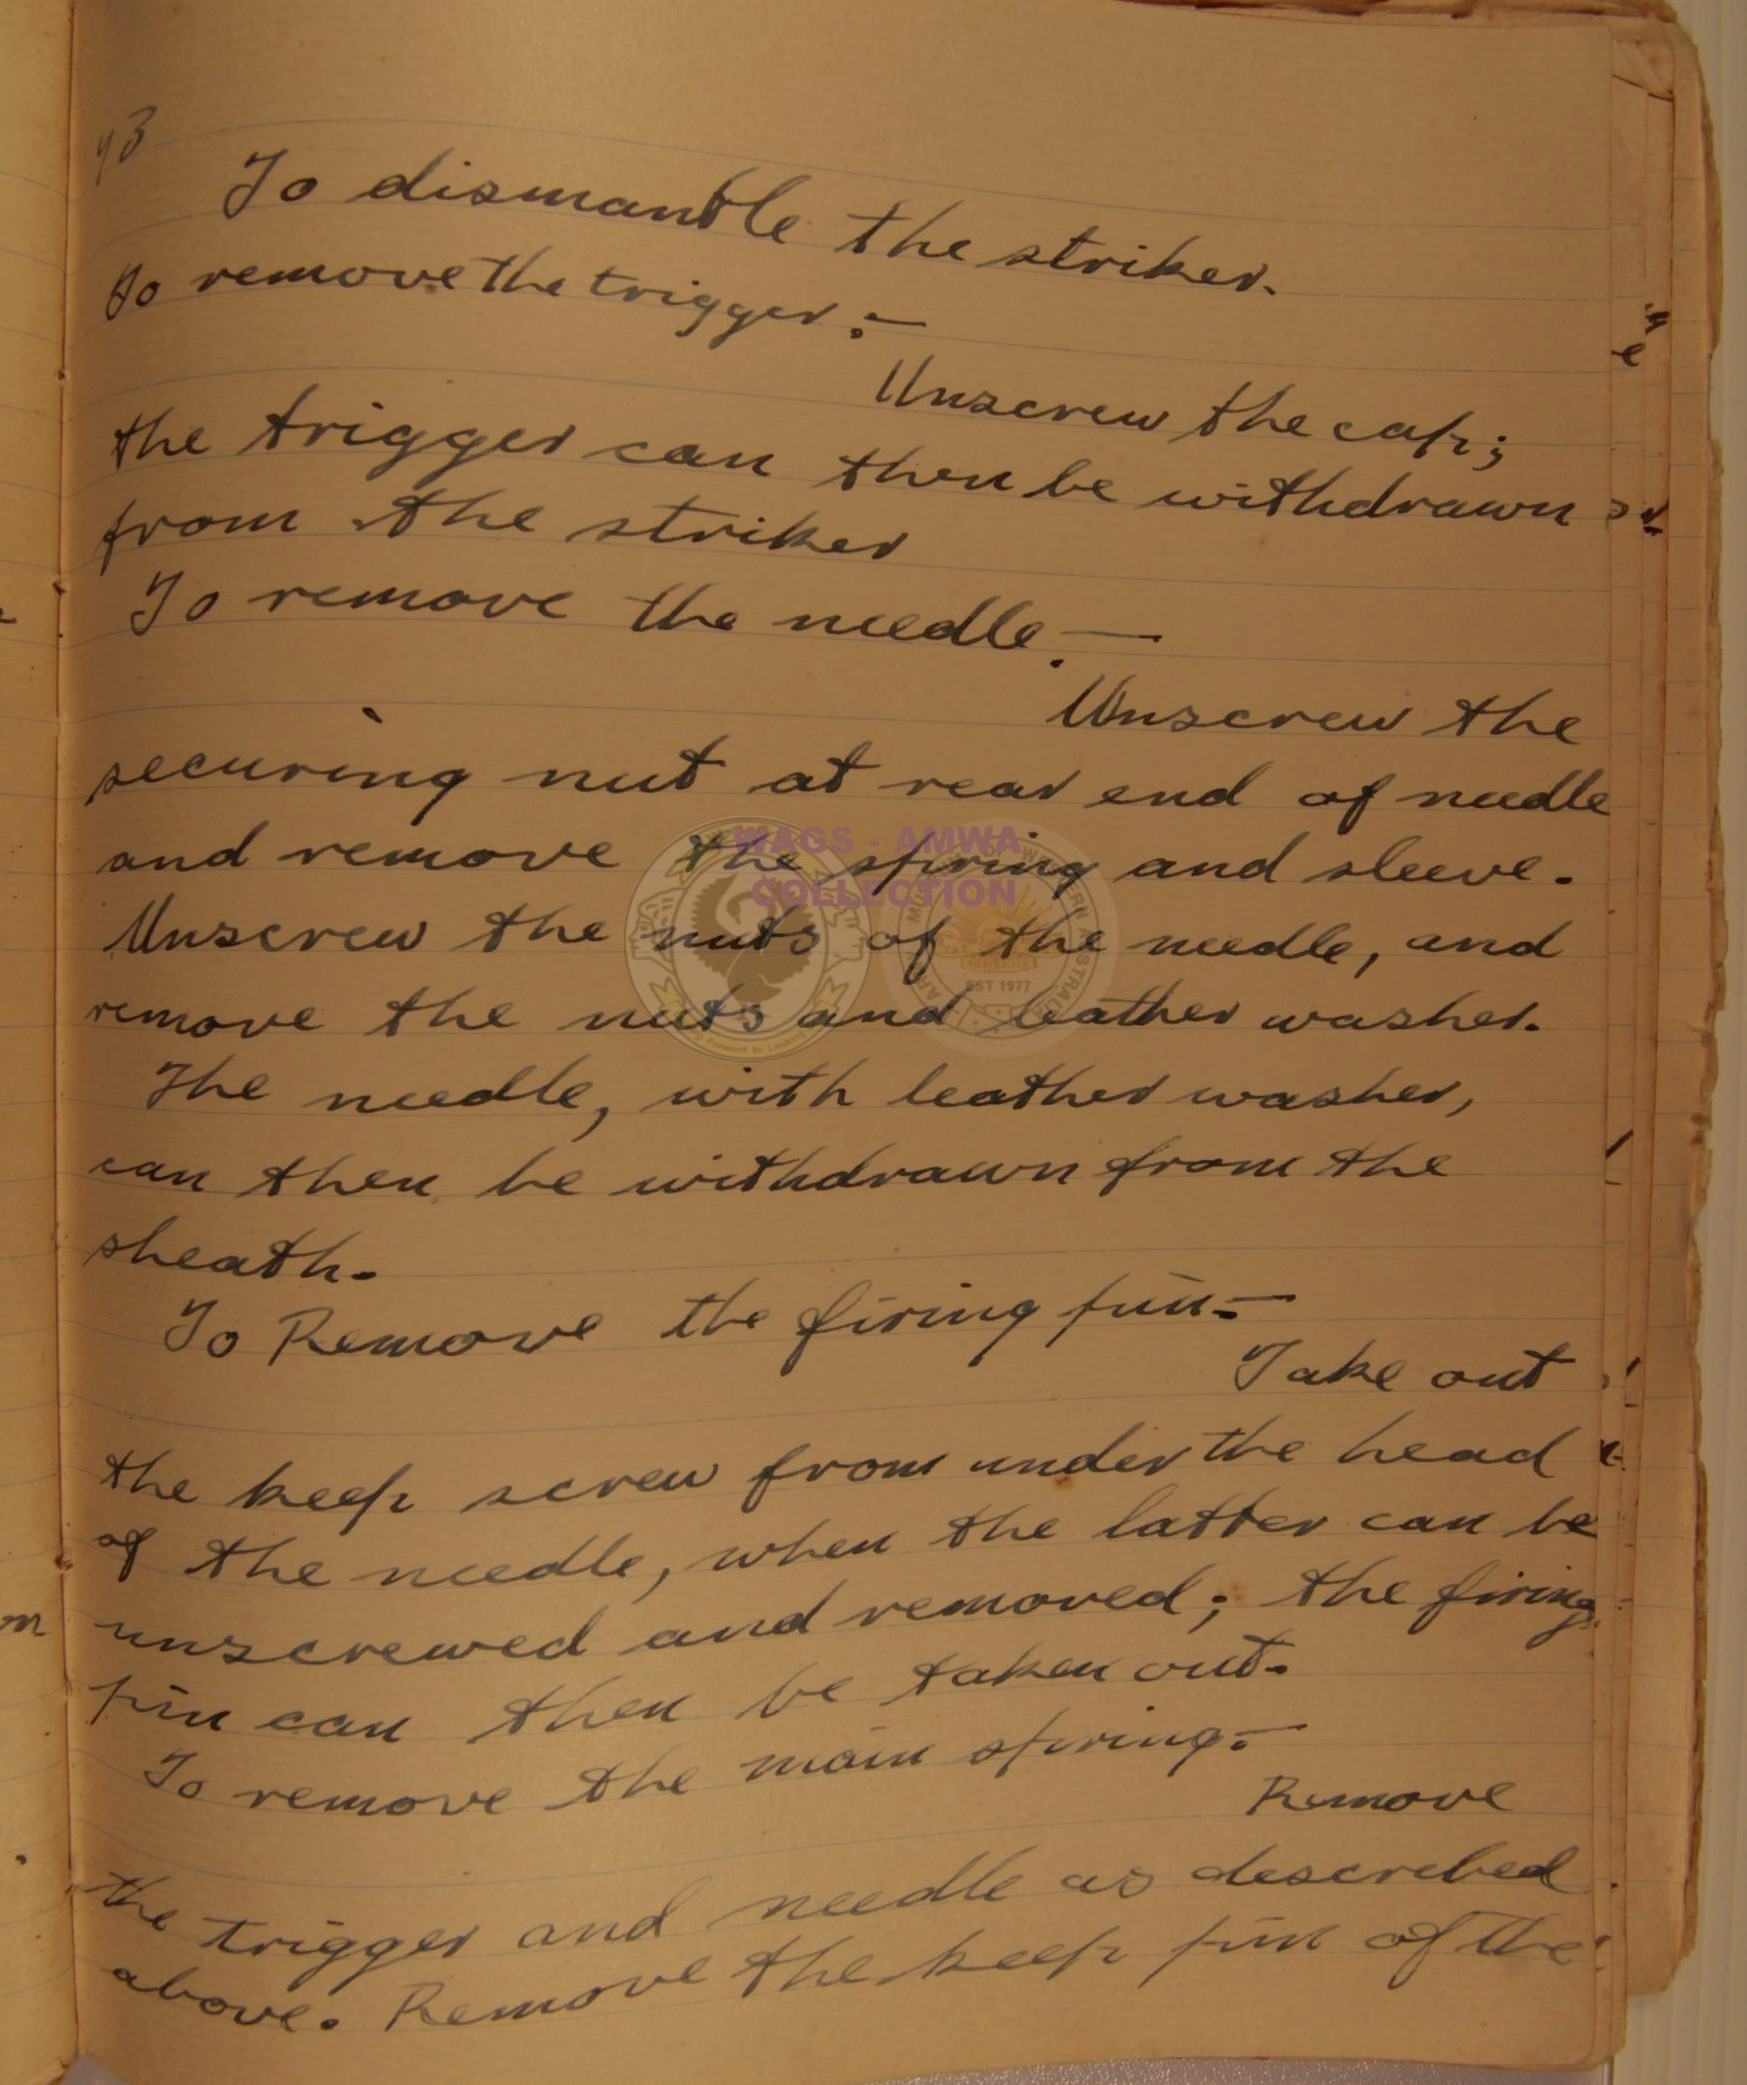 43
To dismantle the striker.
To remove the trigger :—
Unscrew the cap;
the trigger can then be withdrawn
from the striker
To remove the needle.—
Unscrew the
securing nut at rear end of needle
and remove the spring and sleeve.
Unscrew the nuts of the needle, and
remove the nuts and leather washer.
The needle, with leather washer,
can then be withdrawn from the
sheath.
To Remove the firing pin.—
Take out
the keep screw from under the head
of the needle, when the latter can be
unscrewed and removed; the firing
pin can then be taken out.
To remove the main spring.—
Remove
the trigger and needle as described
above. Remove the keep pin of the
WAGS - AMWA
COLLECTION
EST 1977